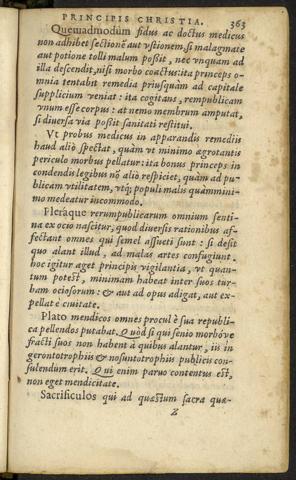 PRINCIPIS CHRISTIA. 363
Quemadmodum fidus ac doctus medicus
non adhibet sectionẽ aut vstionem, si malagmate
aut potione tolli malum possit, nec vnquam ad
illa descendit, nisi morbo coactus: ita princeps o-
mnia tentabit remedia priusquàm ad capitale
supplicium veniat: ita cogitans, rempublicam
vnum esse corpus: at nemo membrum amputat,
si diuersa via possit sanitati restitui.
Vt probus medicus in apparandis remediis
haud aliò spectat, quàm vt minimo ægrotantis
periculo morbus pellatur: ita bonus princeps in
condendis legibus nõ aliò respiciet, quàm ad pu-
blicam vtilitatem, vtq; populi malis quàmmini-
mo medeatur incommodo.
Pleraque rerumpublicarum omnium senti-
na ex ocio nascitur, quod diuersis rationibus af-
fectant omnes qui semel assueti sunt: si desit
quo alant illud, ad malas artes confugiunt.
hoc igitur aget principis vigilantia, vt quan-
tum potest, minimam habeat inter suos tur-
bam ociosorum: & aut ad opus adigat, aut ex-
pellat è ciuitate.
Plato mendicos omnes procul è sua republi-
ca pellendos putabat. Quòd si qui senio morbóve
fracti suos non habent à quibus alantur, iis in
gerontotrophiis & nosuntotrophiis publicis con-
sulendum erit. Qui enim paruo contentus est,
non eget mendicitate.
Sacrificulos qui ad quæstum sacra quæ-
Z